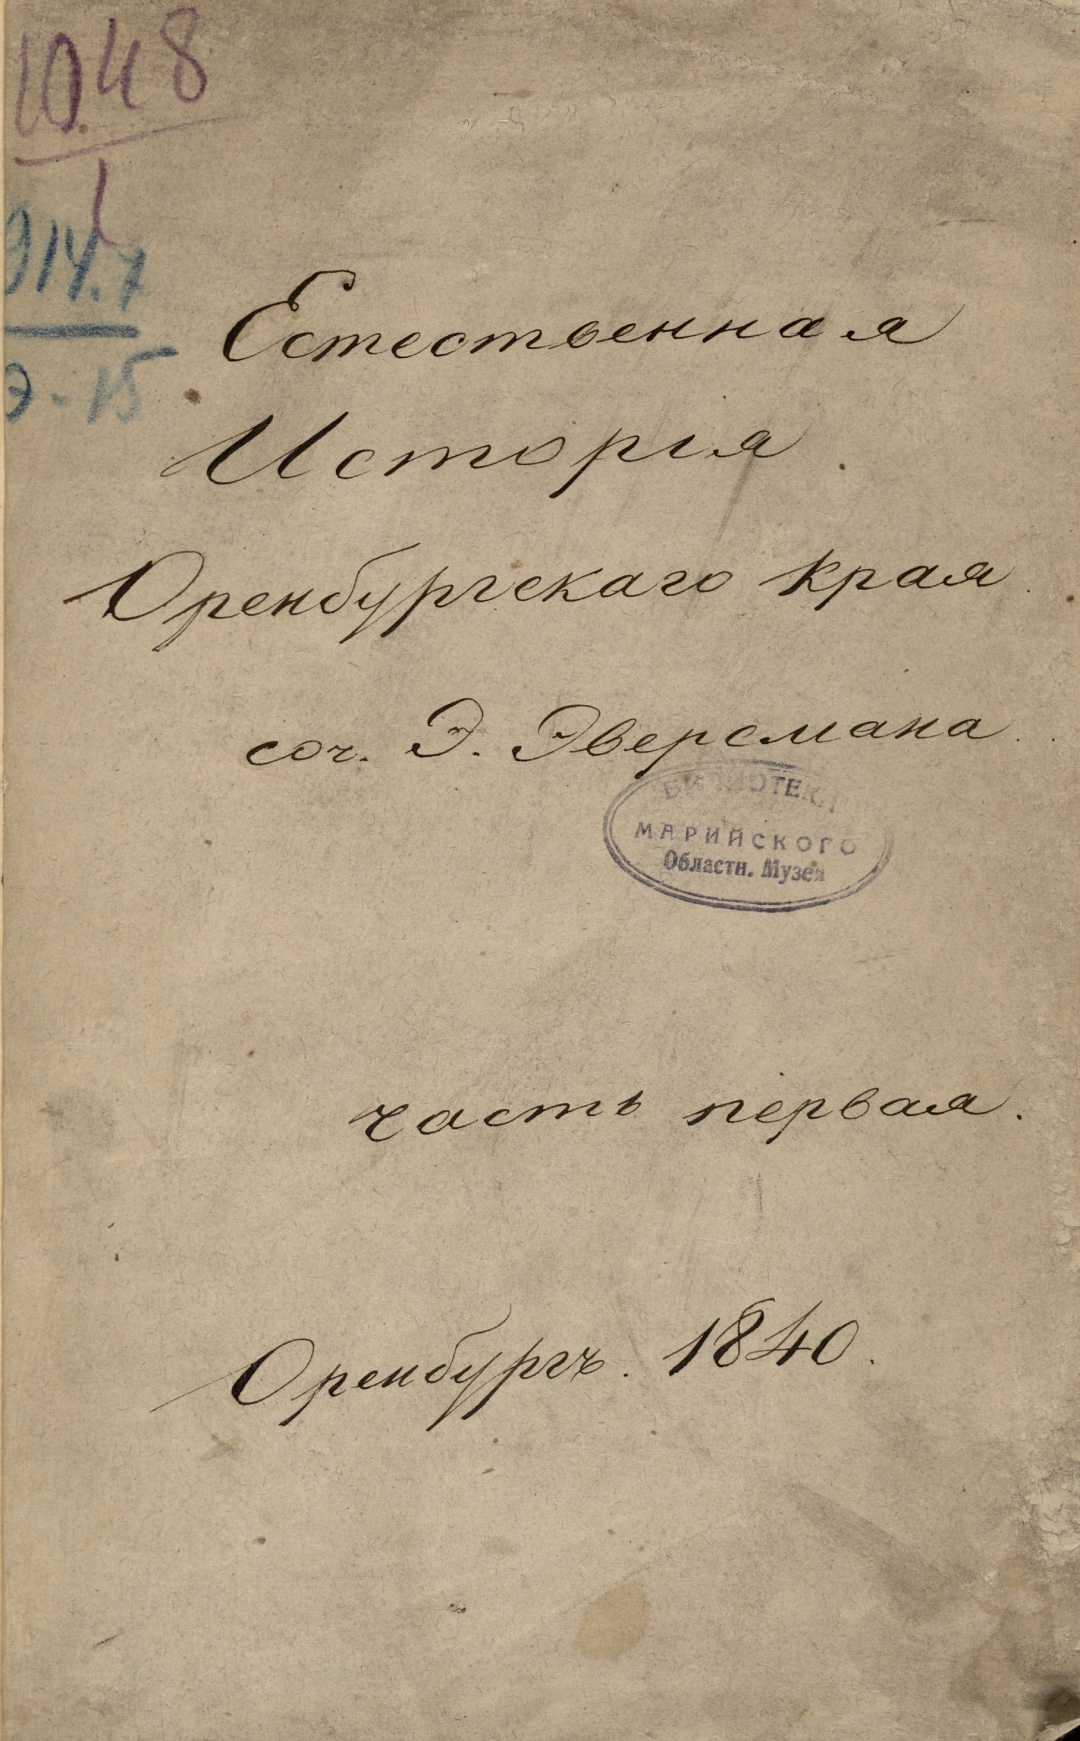 1048
1
914.7
Э-15
Естественная
Исторія
Оренбургскаго края.
соч. Э. Эверсмана.
БИБЛИОТЕКА
МАРИЙСКОГО
Областн. Музея
часть первая.
Оренбургъ. 1840.